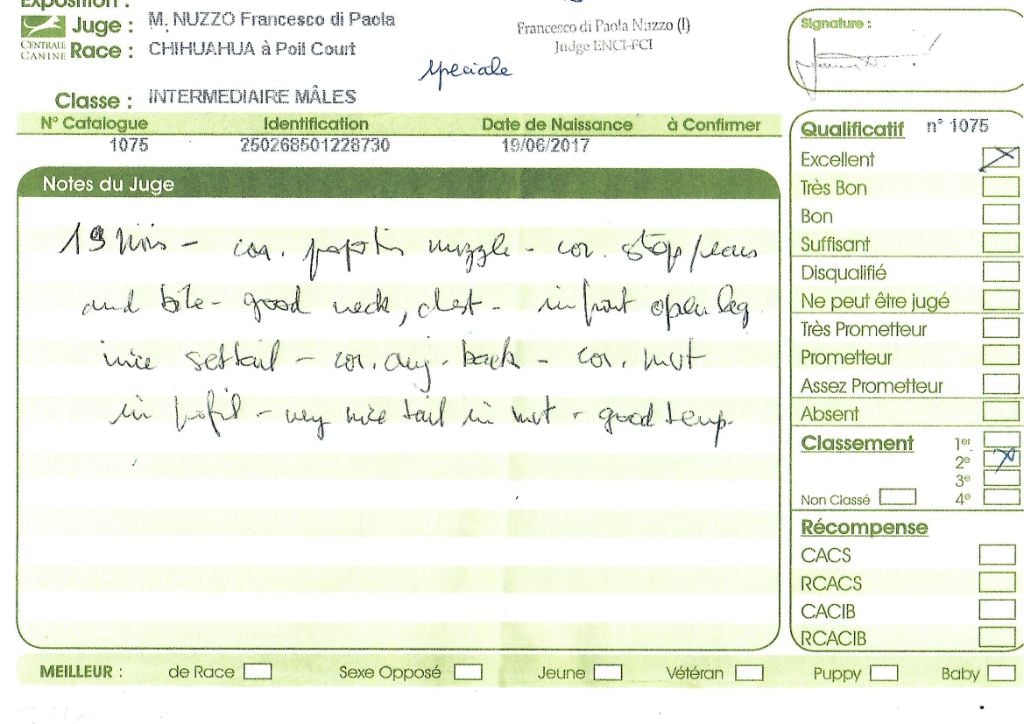 Exposition :
Juge : M. NUZZO Francesco di Paola
Francesco di Paola Nuzzo (I)
Judge ENCI-FCI
CENTRALE CANINE
Race : CHIHUAHUA à Poil Court
speciale
Signature :
Classe : INTERMEDIAIRE MÂLES
N° Catalogue Identification Date de Naissance à Confirmer
1075 250268501228730 19/06/2017
Notes du Juge
cor. muzzle - cor. stop/ears
and bite - good neck, chest - in front open leg
nice set tail - cor. back - cor. mvt
in profil - very nice tail in mvt - good temp.
Qualificatif n° 1075
Excellent
Très Bon
Bon
Suffisant
Disqualifié
Ne peut être jugé
Très Prometteur
Prometteur
Assez Prometteur
Absent
Classement 1er
2e
3e
Non Classé 4e
Récompense
CACS
RCACS
CACIB
RCACIB
MEILLEUR : de Race Sexe Opposé Jeune Vétéran Puppy Baby